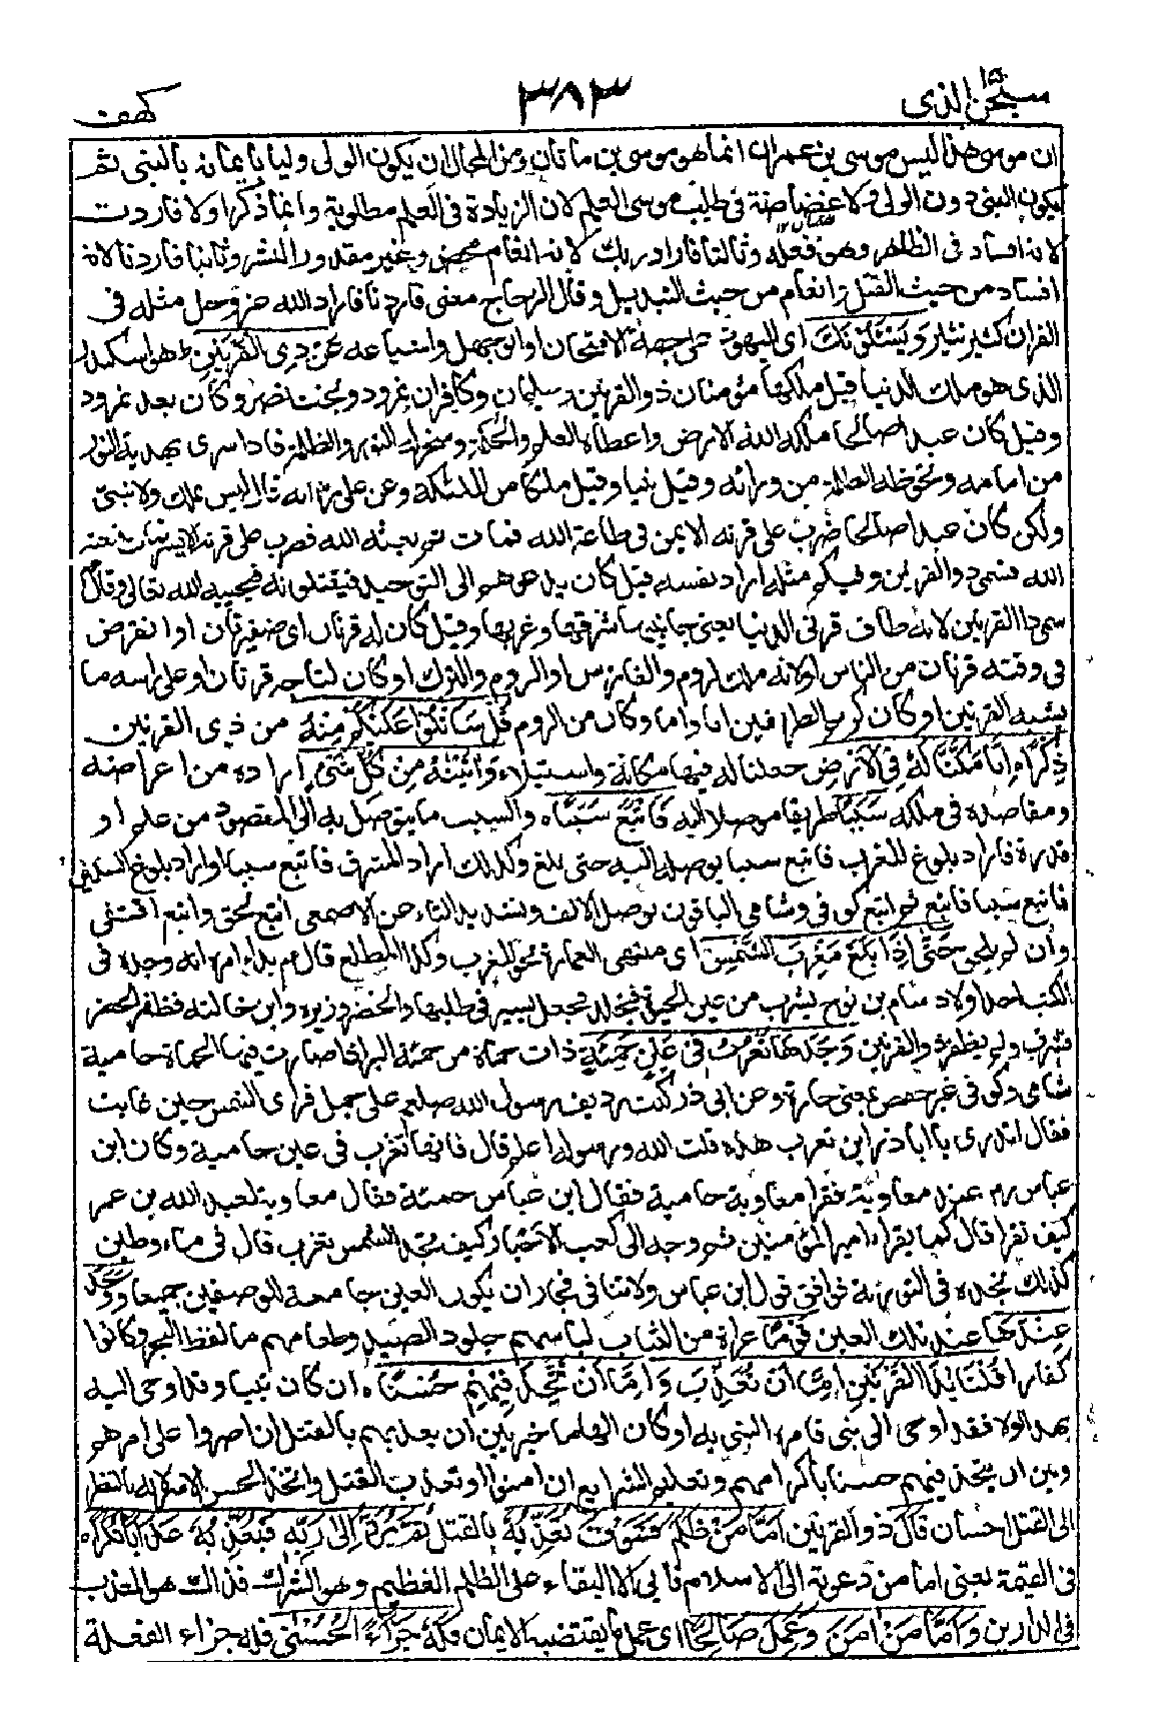 سبحن الذى ٣٨٣ كهف
ان موسى هذا ليس موسى بن عمران انما هو موسى بن ماثان ومن المحال ان يكون الولى وليا بايمانه بالنبى ثم
يكون النبى دون الولى ولا غضاضة فى طلب موسى العلم لان الزيادة فى العلم مطلوبة وانما ذكر اولا فاردت
لانه افساد فى الظاهر وهو فعله وثالثا فاراد ربك لانه انعام محض وغير مقدور البشر وثانيا فاردنا لانه
افساد من حيث القتل وانعام من حيث التبديل وقال الزجاج معنى فاردنا فاراد الله عز وجل مثله فى
القران كثير ويسئلونك اى اليهود على جهة الامتحان او ابو جهل واشياعه عن ذى القرنين هو اسكندر
الذى هو ملك الدنيا قيل ملكها مؤمنان ذو القرنين وسليمان وكافران نمرود وبخت نصر وكان بعد نمرود
وقيل كان عبدا صالحا ملكه الله الارض واعطاه العلم والحكمة وسخر له النور والظلمة فاذا سرى يهديه النور
من امامه وتحوطه الظلمة من ورائه وقيل نبيا وقيل ملكا من الملئكة وعن على رض انه قال ليس بملك ولا نبى
ولكن كان عبدا صالحا ضرب على قرنه الايمن فى طاعة الله فمات ثم بعثه الله فضرب على قرنه الايسر فمات فبعثه
الله فسمى ذو القرنين وفيكم مثله اراد نفسه قيل كان يدعوهم الى التوحيد فيقتلونه فيحييه الله تعالى وقال
سمى ذا القرنين لانه طاف قرنى الدنيا يعنى جانبيها شرقها وغربها وقيل كان له قرنان اى ضفيرتان او انقرض
فى وقته قرنان من الناس او لانه ملك الروم والفارس او الروم والترك او كان لتاجه قرنان او على راسه ما
يشبه القرنين او كان كريم الطرفين ابا واما وكان من الروم قل ساتلوا عليكم منه من ذى القرنين
ذكرا انا مكنا له فى الارض جعلنا له فيها مكانة واستيلاء واتينه من كل شئ اراده من اغراضه
ومقاصده فى ملكه سببا طريقا موصلا اليه فاتبع سببا والسبب ما يتوصل به الى المقصود من علم او
قدرة فاراد بلوغ المغرب فاتبع سببا يوصله اليه حتى بلغ وكذلك اراد المشرق فاتبع سببا واراد بلوغ السدين
فاتبع سببا فاتبع ثم اتبع كوفى وشامى الباقون بوصل الالف وتشديد التاء عن الاصمعى اتبع لحق واتبع اقتفى
وان لم يلحق حتى اذا بلغ مغرب الشمس اى منتهى العمارة نحو المغرب وكذا المطلع قال م بدء امره انه وجد فى
الكتب احد اولاد سام بن نوح يشرب من عين الحيوة فيخلد فجعل يسير فى طلبها والخضر وزيره وابن خالته فظفر الخضر
فشرب ولم يظفر ذو القرنين وجدها تغرب فى عين حمئة ذات حماة من حمئت البئر اذا صارت فيها الحماة حامية
شامى وكوفى غير حفص بمعنى حارة وعن ابى ذر كنت رديف رسول الله صلعم على جمل فراى الشمس حين غابت
فقال اتدرى يا اباذر اين تغرب هذه قلت الله ورسوله اعلم قال فانها تغرب فى عين حامية وكان ابن
عباس رم عند معاوية فقرا معاوية حامية فقال ابن عباس حمئة فقال معاوية لعبد الله بن عمر
كيف تقرا قال كما يقرا امير المؤمنين ثم وجه الى كعب الاحبار كيف تجد الشمس تغرب قال فى ماء وطين
كذلك نجده فى التورية فوافق قول ابن عباس ولا تنافى فجاز ان يكون العين جامعة للوصفين جميعا ووجد
عندها عند تلك العين قوما عراة من الثياب لباسهم جلود الصيد وطعامهم ما لفظ البحر وكانوا
كفارا قلنا يذا القرنين اما ان تعذب واما ان تتخذ فيهم حسنا ان كان نبيا فقد اوحى اليه
بهذا والا فقد اوحى الى نبى فامره النبى به او كان الهاما خير بين ان يعذبهم بالقتل ان اصروا على امرهم
وبين ان يتخذ فيهم حسنا باكرامهم وتعليم الشرايع ان امنوا او تعذب القتل واتخاذ الحسن الاسر لانه بالنظر
الى القتل احسان قال ذو القرنين اما من ظلم فسوف نعذبه بالقتل ثم يرد الى ربه فيعذبه عذابا نكرا
فى القيمة يعنى اما من دعوته الى الاسلام فابى الا البقاء على الظلم العظيم وهو الشرك فذاك هو المعذب
فى الدارين واما من امن وعمل صالحا اى عمل ما يقتضيه الايمان فله جزاء الحسنى فله جزاء الفعلة